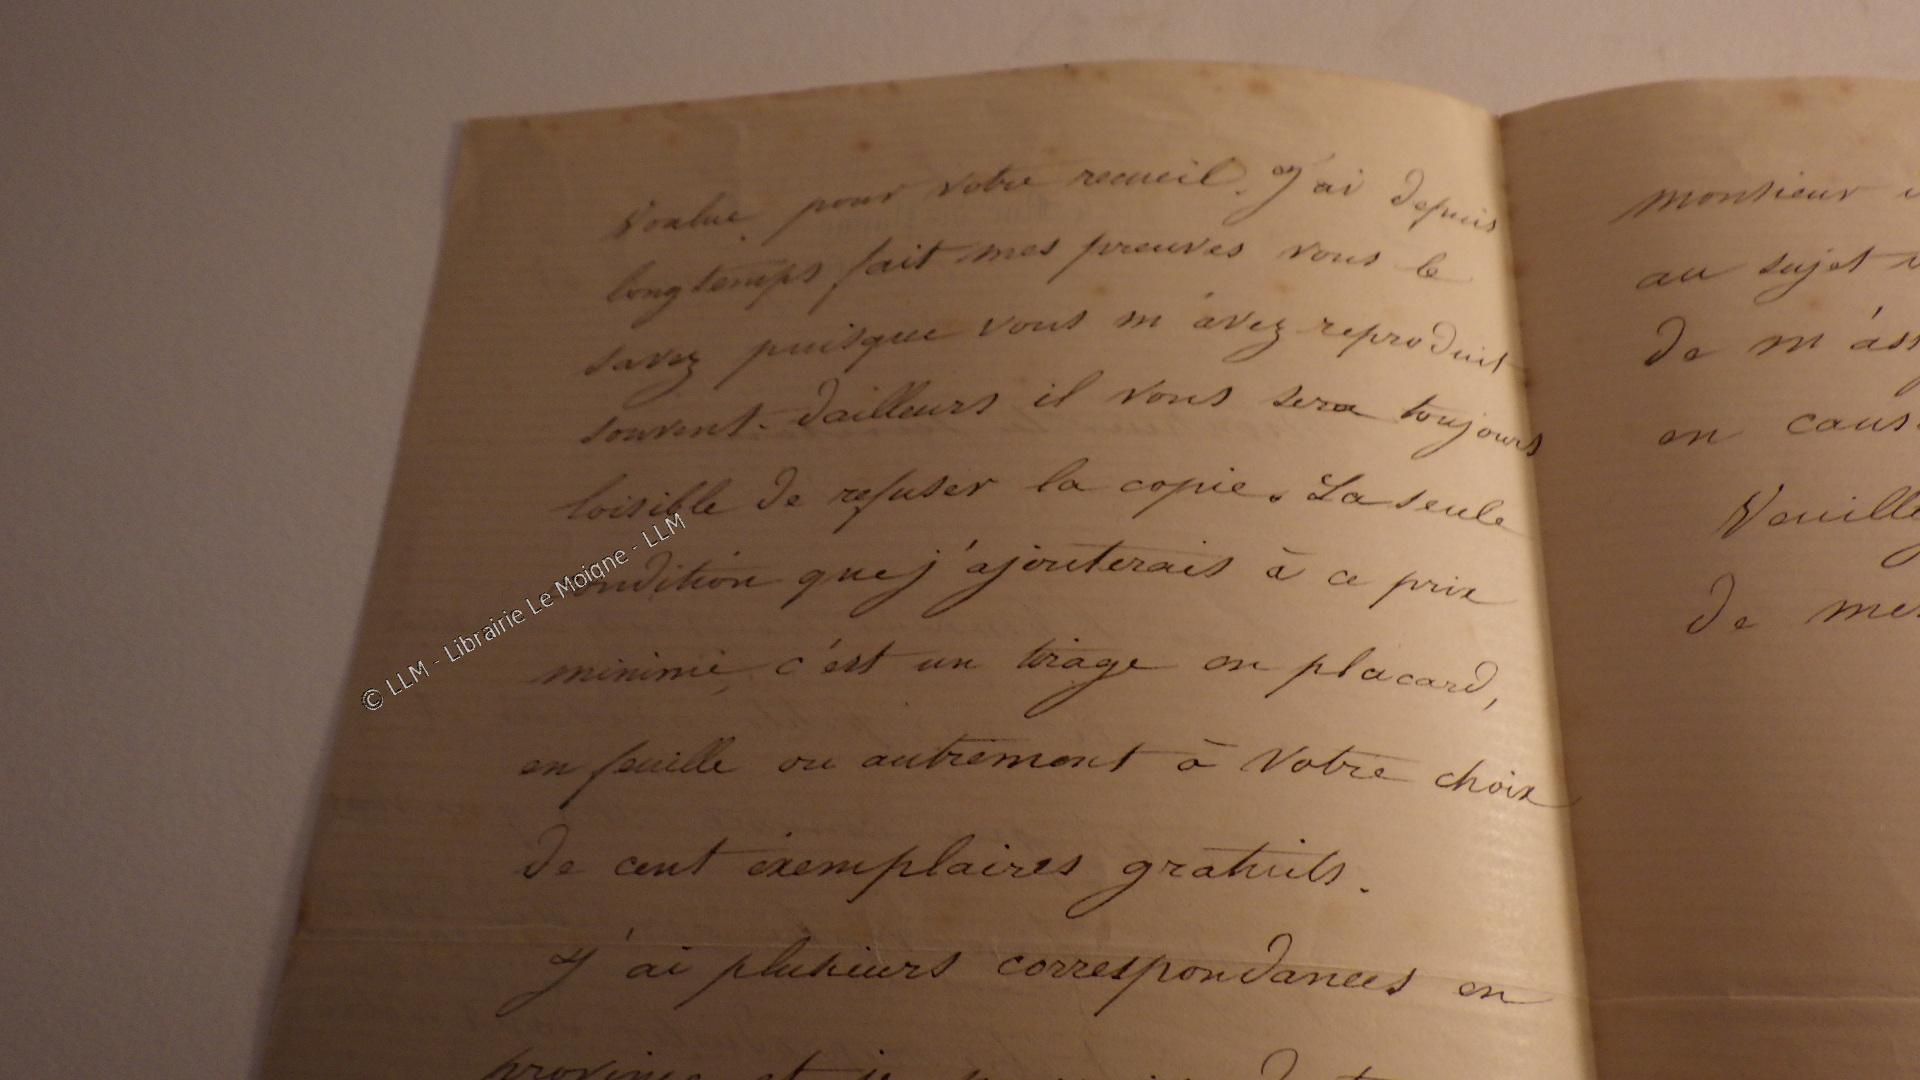 voulue pour votre recueil. J'ai depuis
longtemps fait mes preuves vous le
savez puisque vous m'avez reproduit
souvent. d'ailleurs il vous sera toujours
loisible de refuser la copie. La seule
condition que j'ajouterais à ce prix
minime, c'est un tirage en placard,
en feuille ou autrement à votre choix
de cent exemplaires gratuits.
J'ai plusieurs correspondances en
province et je
monsieur
au sujet
de m'ass
en caus
Veuille
de mes
© LLM - Librairie Le Moigne - LLM